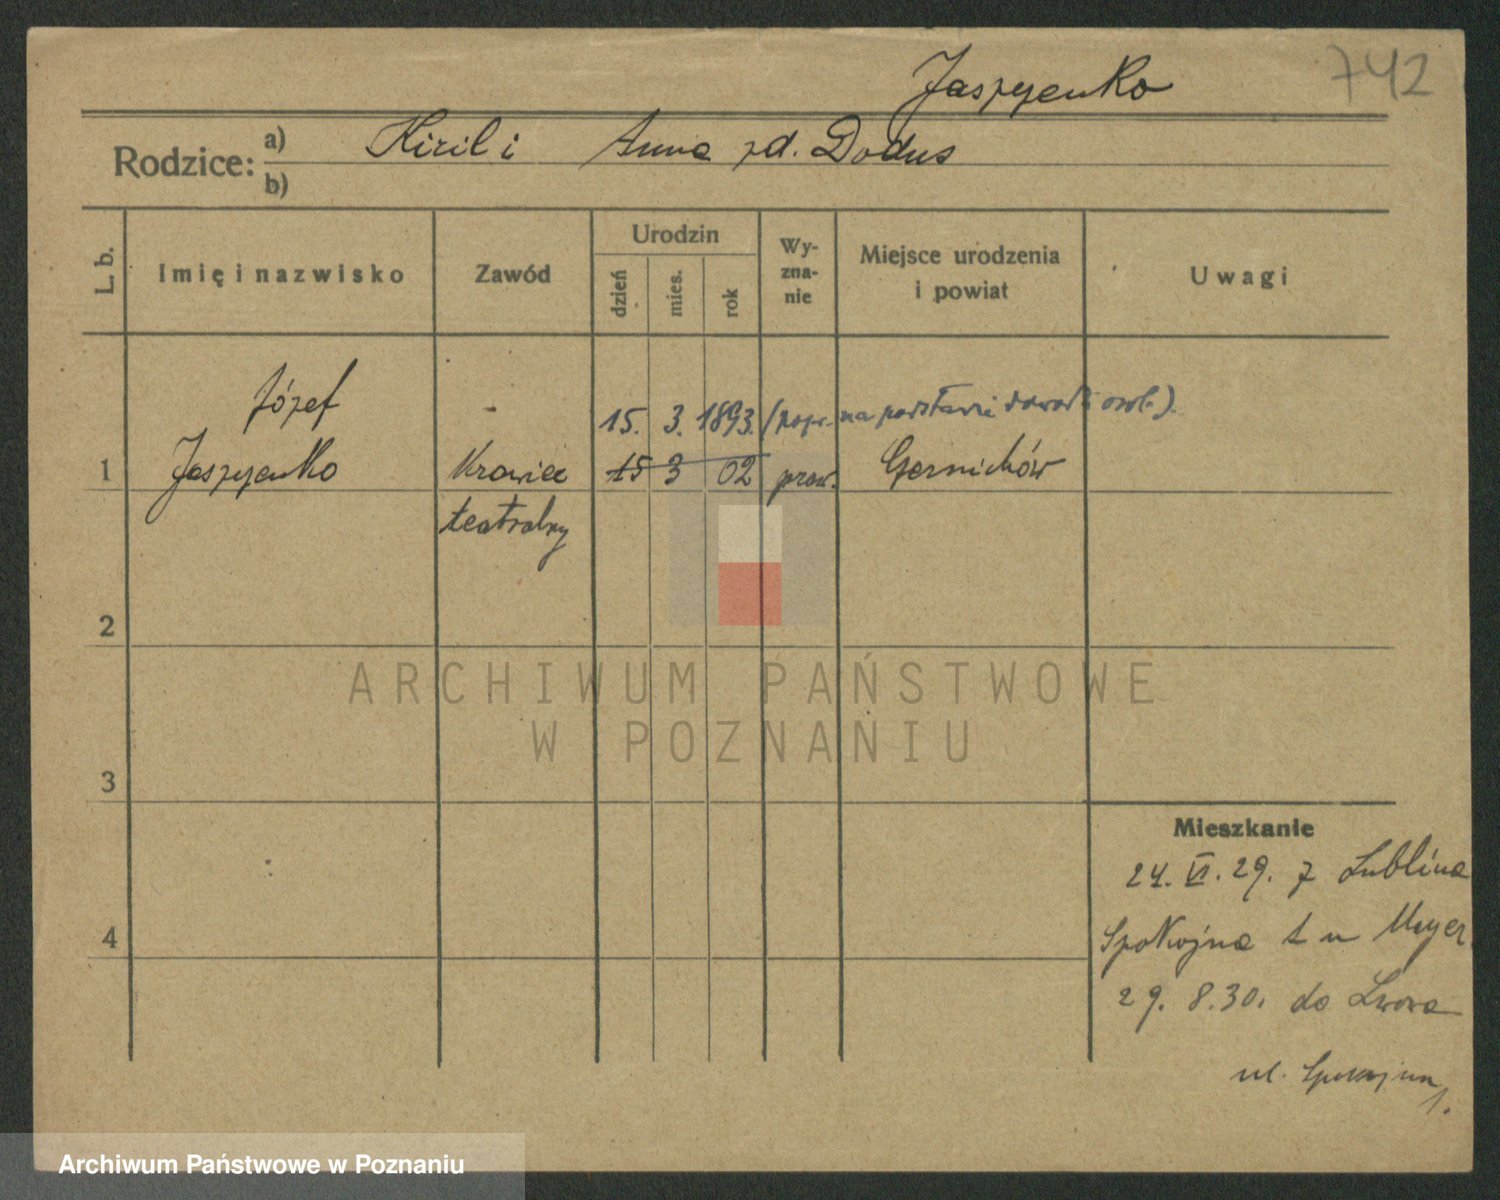 742
Jaszczenko
Rodzice: a) Kiril i Anna zd. Dodus
b)
L. b. Imię i nazwisko Zawód Urodzin dzień mies. rok Wyznanie Miejsce urodzenia i powiat Uwagi
Józef -
15. 3. 1893. (popr. na podstawie dowodu osob.).
1 Jaszczenko Krawiec 15 3 02 praw. Czernichów
teatralny
2
ARCHIWUM PAŃSTWOWE
W POZNANIU
3
Mieszkanie
24. VI. 29. z Lublina
4 Spokojna 1 u Meyer.
29. 8.30. do Lwowa
ul. Spokojna
1.
Archiwum Państwowe w Poznaniu